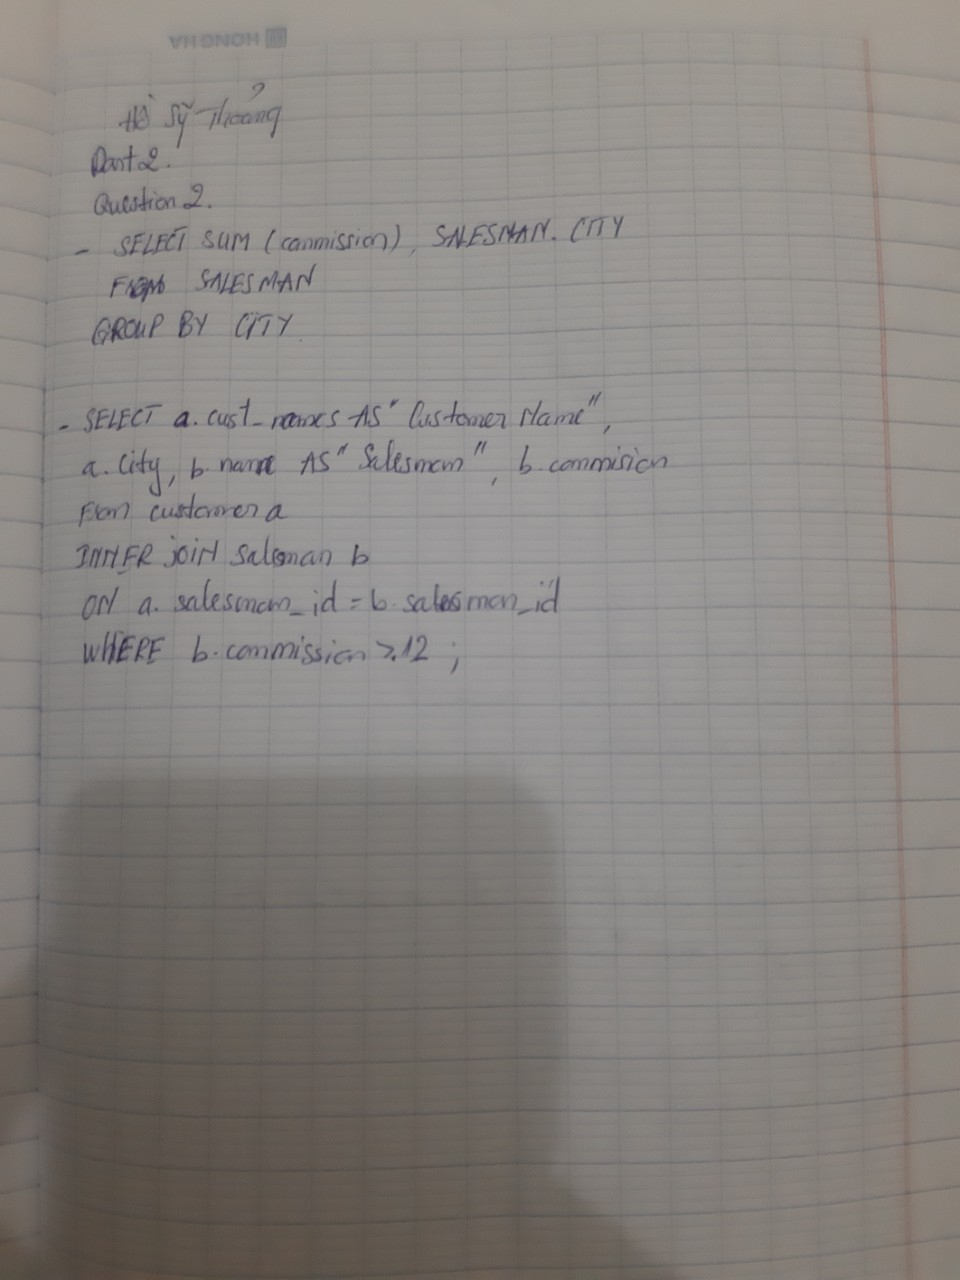 HONG HA
Hồ Sỹ Thoảng
Part 2.
Question 2.
- SELECT SUM (commission), SALESMAN. CITY
FROM SALESMAN
GROUP BY CITY.
- SELECT a. cust_names AS "Customer Name",
a. City, b. name AS "Salesman", b. commision
From customer a
INNER joiN Salsman b
ON a. salesman_id = b. salesman_id
WHERE b. commission >.12 ;